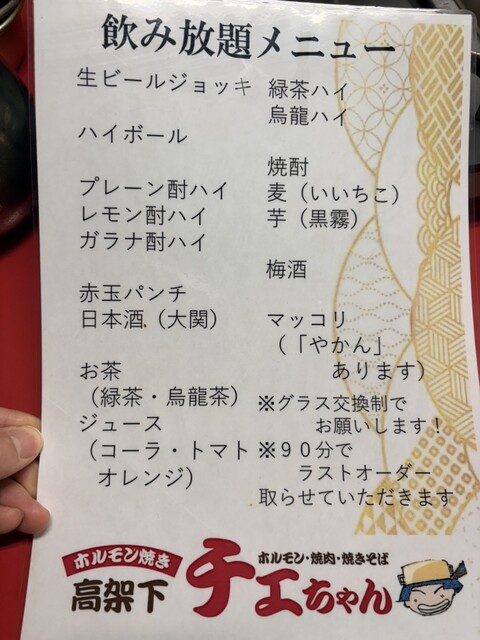 飲み放題メニュー
生ビールジョッキ
ハイボール
プレーン酎ハイ
レモン酎ハイ
ガラナ酎ハイ
赤玉パンチ
日本酒（大関）
お茶
（緑茶・烏龍茶）
ジュース
（コーラ・トマト
オレンジ）
緑茶ハイ
烏龍ハイ
焼酎
麦（いいちこ）
芋（黒霧）
梅酒
マッコリ
（「やかん」
あります）
※グラス交換制で
お願いします！
※９０分で
ラストオーダー
取らせていただきます
ホルモン焼き
高架下
チエちゃん
ホルモン・焼肉・焼きそば